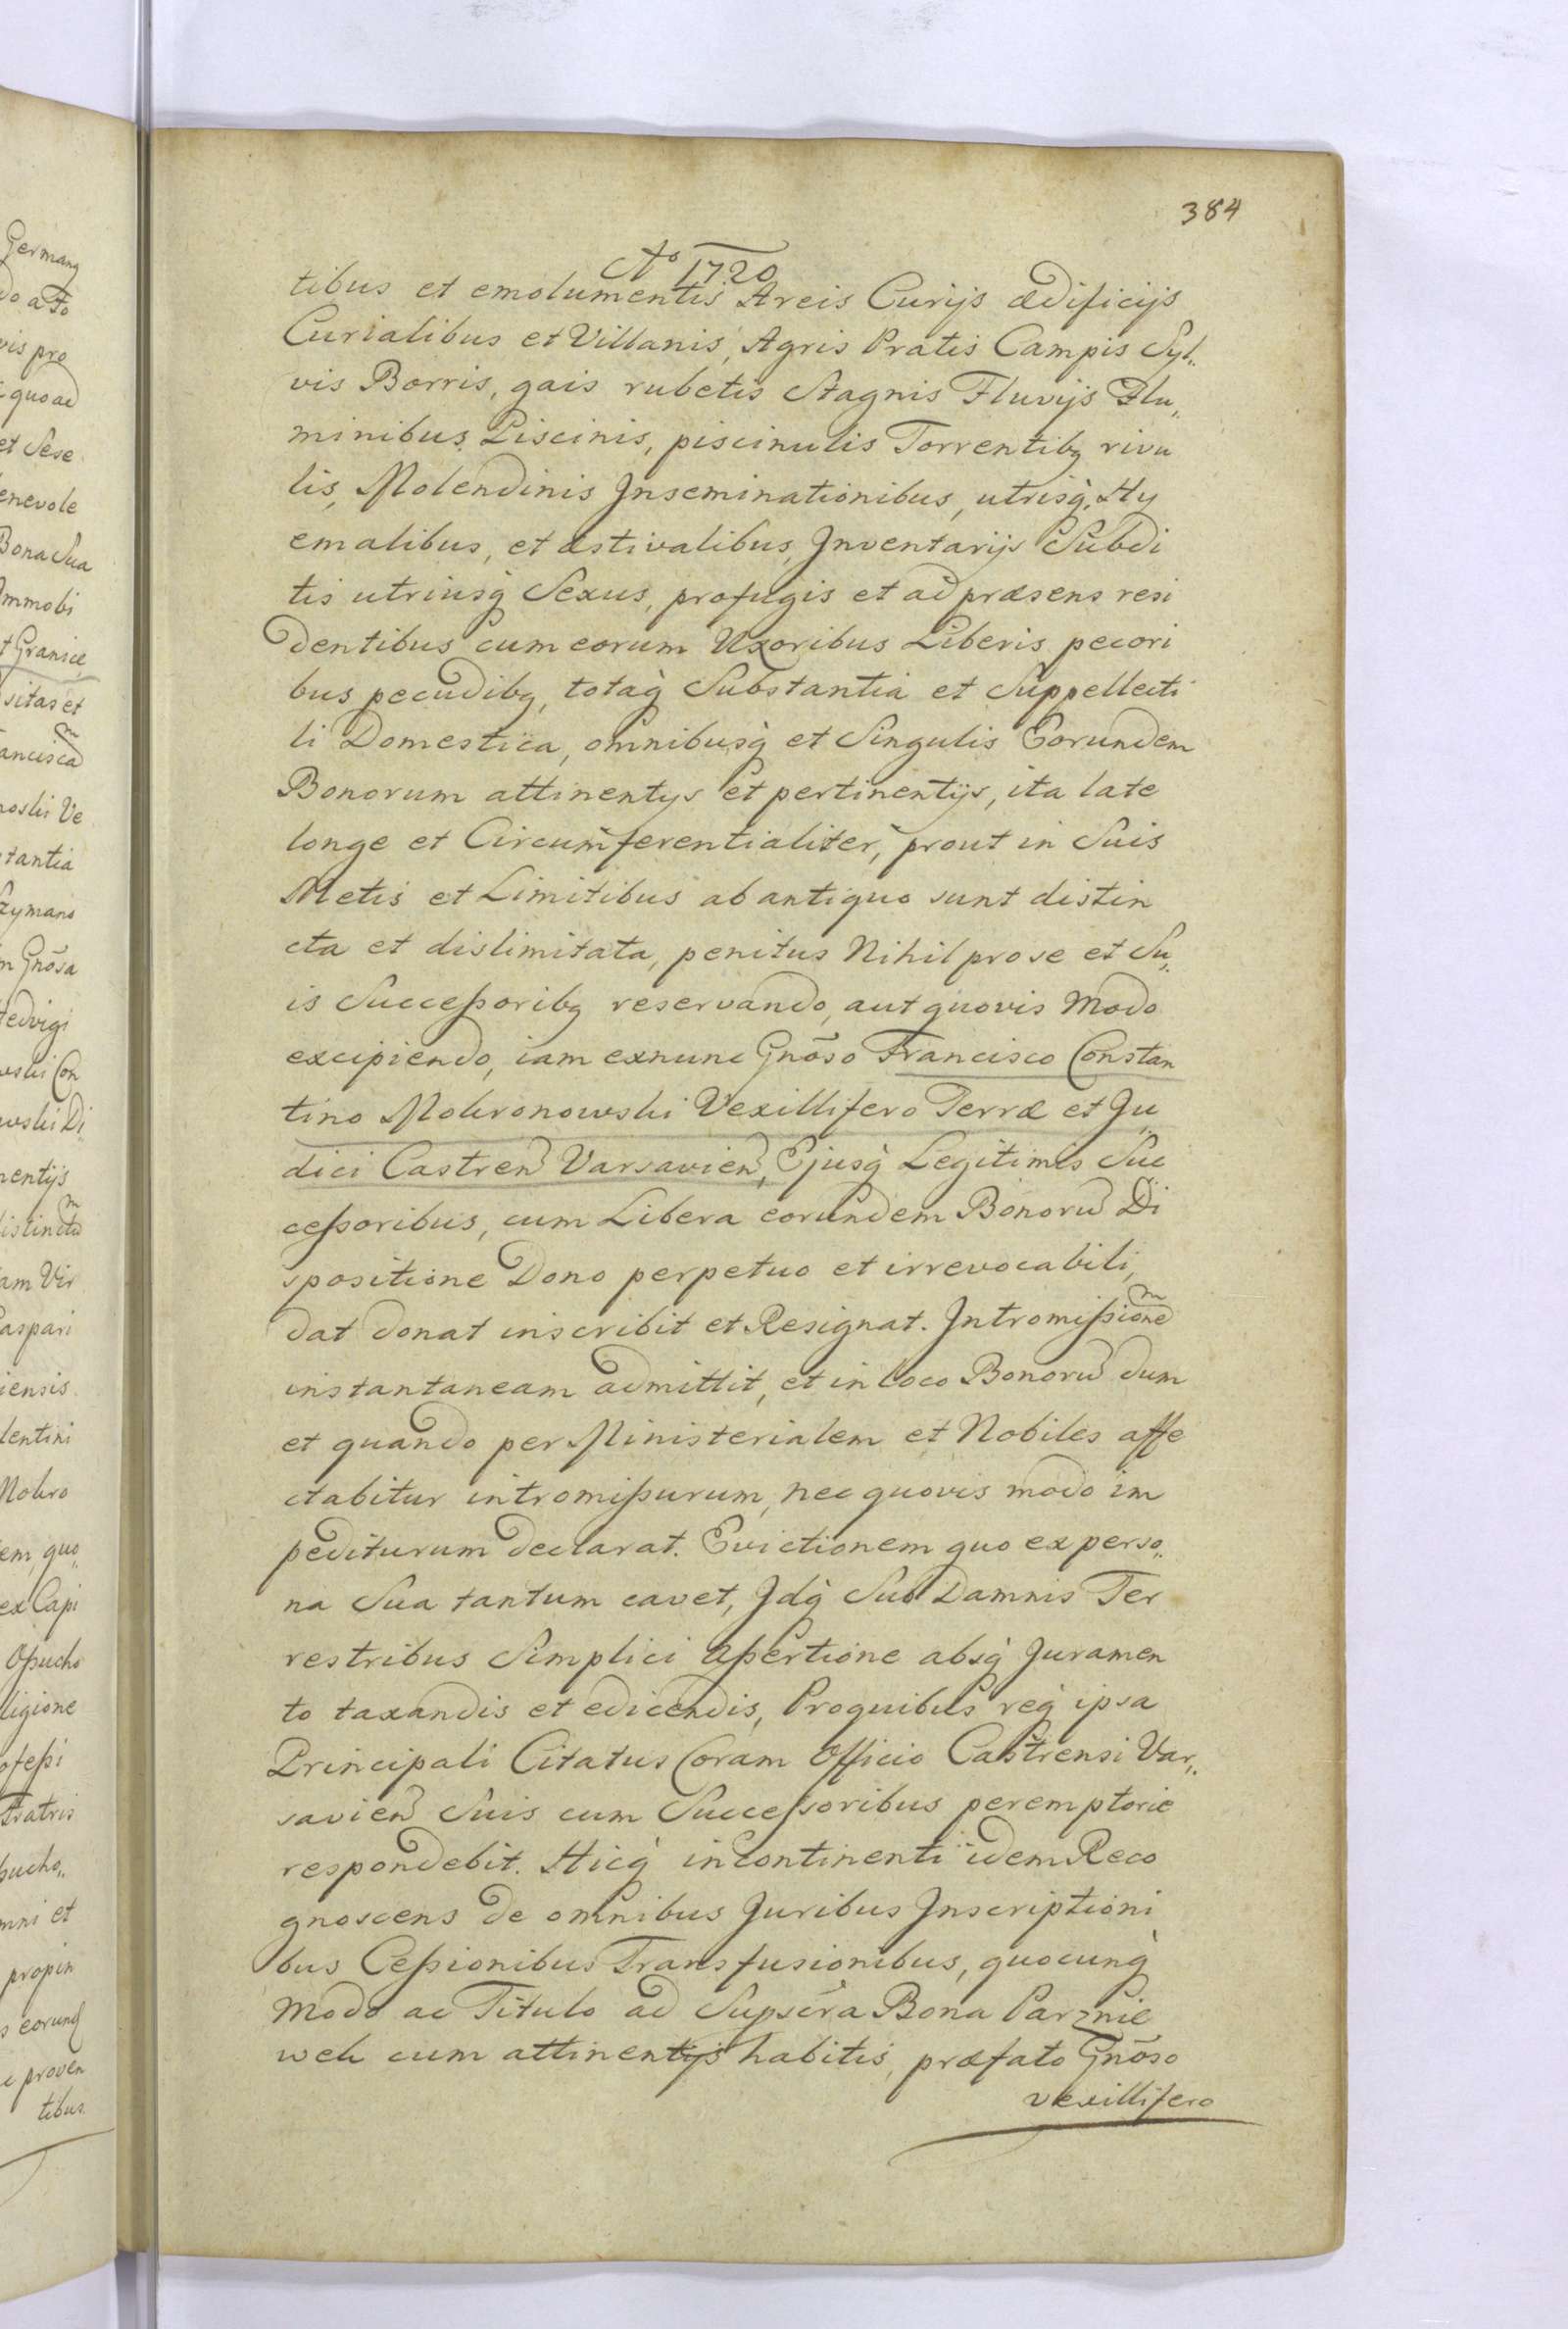 384
Ao 1720
tibus et emolumentis Areis Curijs ædificijs
Curialibus et Villanis, Agris Pratis Campis Syl„
vis Borris, gais rubetis Stagnis Fluvijs Flu„
minibus Piscinis, piscinulis Torrentibq rivu
lis, Molendinis Jnseminationibus, utrisq̀, Hy
emalibus, et æstivalibus, Jnventarijs Subdi
tis utriusq̀ Sexus, profugis et ad præsens resi
dentibus cum eorum Uxoribus Liberis pecori
bus pecudibq, totaq̀ Substantia et Suppellecti
li Domestica, omnibusq̀ et Singulis Eorundem
Bonorum attinentys et pertinentijs, ita late
longe et Circumferentialiter, prout in Suis
Metis et Limitibus ab antiquo sunt distin
cta et dislimitata, penitus Nihil pro se et Su„
is Succeßoribq reservando, aut quovis Modo
excipiendo, iam exnunc Gnõso Francisco Constan
tino Mokronowski Vexillifero Terræ et Ju„
dici Castren Varsavien, Ejusq̀ Legitimis Suc
ceßoribus, cum Libera eorundem Bonorũ Di
spositione Dono perpetuo et irrevocabili,
dat donat inscribit et Resignat. Jntromißionem
instantaneam admittit, et in loco Bonorũ dum
et quando per Ministerialem et Nobiles affe
ctabitur intromißurum, nec quovis modo im
pediturum declarat. Evictionem quo ex perso„
na Sua tantum cavet, Jdq̀ Sub Damnis Ter
restribus Simplici aßertione absq̀ Juramen
to taxandis et edicendis, Proquibus req̀ ipsa
Principali Citatus Coram Officio Castrensi Var„
savien Suis cum Succeßoribus peremptorie
respondebit. Hicq̀ incontinenti idem Reco
gnoscens de omnibus Juribus Jnscriptioni
bus Ceßionibus Transfusionibus, quocunq̀
Modo ac Titulo ad Supscra Bona Parznie
wek cum attinentijs habitis, præfato Gnõso
vexillifero
Germanq
do a To
vis pro
quoad
et Sese
enevole
Bona Sua
Jmmobi
t Granice
sitas et
anciscam
noski Ve
tantia
Szymano
m Gnõsa
Hedvigi
wski Con
owski Di„
nentijs
istinctum
am Vir
Caspari
iensis
lentini
Mokro
em, quo„
ex Capi
Oßucho
ligione
ofeßi
Fratris
ßucho„
mni et
propin
s eorund
e proven
tibus